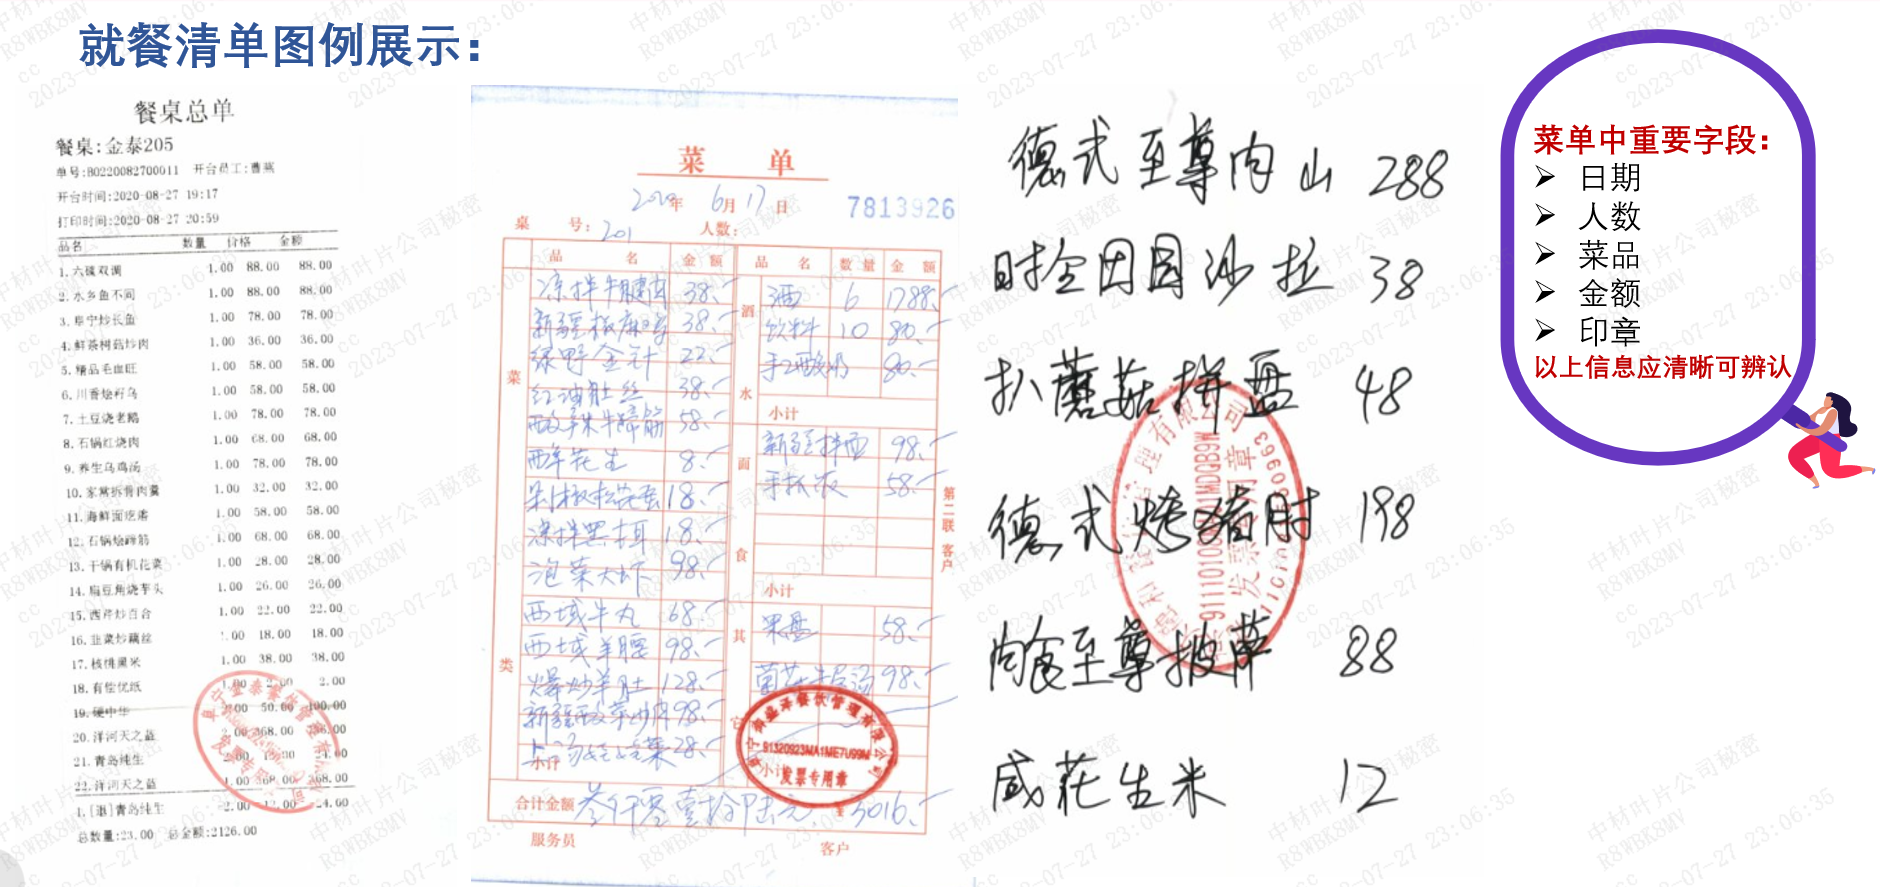 就餐清单图例展示：
餐桌总单
餐桌:金泰205
单号:B0220082700011 开台员工:曹燕
开台时间:2020-08-27 19:17
打印时间:2020-08-27 20:59
品名 数量 价格 金额
1.六碟双调 1.00 88.00 88.00
2.水乡鱼不同 1.00 88.00 88.00
3.阜宁炒长鱼 1.00 78.00 78.00
4.鲜茶树菇炒肉 1.00 36.00 36.00
5.精品毛血旺 1.00 58.00 58.00
6.川香烩籽乌 1.00 58.00 58.00
7.土豆烧老鹅 1.00 78.00 78.00
8.石锅红烧肉 1.00 68.00 68.00
9.养生乌鸡汤 1.00 78.00 78.00
10.家常拆骨肉羹 1.00 32.00 32.00
11.海鲜面疙瘩 1.00 58.00 58.00
12.石锅烩蹄筋 1.00 68.00 68.00
13.干锅有机花菜 1.00 28.00 28.00
14.扁豆角烧芋头 1.00 26.00 26.00
15.西芹炒百合 1.00 22.00 22.00
16.韭菜炒藕丝 1.00 18.00 18.00
17.核桃黑米 1.00 38.00 38.00
18.有偿优纸 1.00 2.00 2.00
19.硬中华 50.00 100.00
20.洋河天之蓝
21.青岛纯生
22.洋河天之蓝 1.00 368.00 368.00
1.[退]青岛纯生 -2.00 12.00 -24.00
总数量:23.00 总金额:2126.00
菜 单
2020年 6月17日 7813926
桌 号：201 人数：
品 名 金 额 品 名 数 量 金 额
凉拌牛腱肉 38.- 酒 6 1788.-
新疆椒麻鸡 38.- 饮料 10 80.-
绿野金针 22.- 手工酸奶 80.-
红油肚丝 38.- 小计
58.- 新疆拌面 98.-
醉花生 8.- 手抓饭 58.-
剁椒松花蛋 18.-
凉拌黑木耳 18.-
泡菜大虾 98.- 小计
西域牛丸 68.- 果盘 58.-
西域羊腰 98.- 98.-
爆炒羊肚 128.-
98.-
28.-
小计 小计
菜 类 酒 水 面 食 其 它
第二联 客户
合计金额 叁仟零壹拾陆元 ¥ 3016.-
服务员 客户
阜宁御盛泽餐饮管理有限公司
91320923MA1ME7U99M
发票专用章
德式至尊肉山 288
时全因园沙拉 38
扒蘑菇拼盘 48
德式烤猪肘 198
肉食至尊披萨 88
咸花生米 12
发票专用章
菜单中重要字段：
➢ 日期
➢ 人数
➢ 菜品
➢ 金额
➢ 印章
以上信息应清晰可辨认
中材叶片公司秘密
R8WBK8MV
cc
2023-07-27 23:06:35